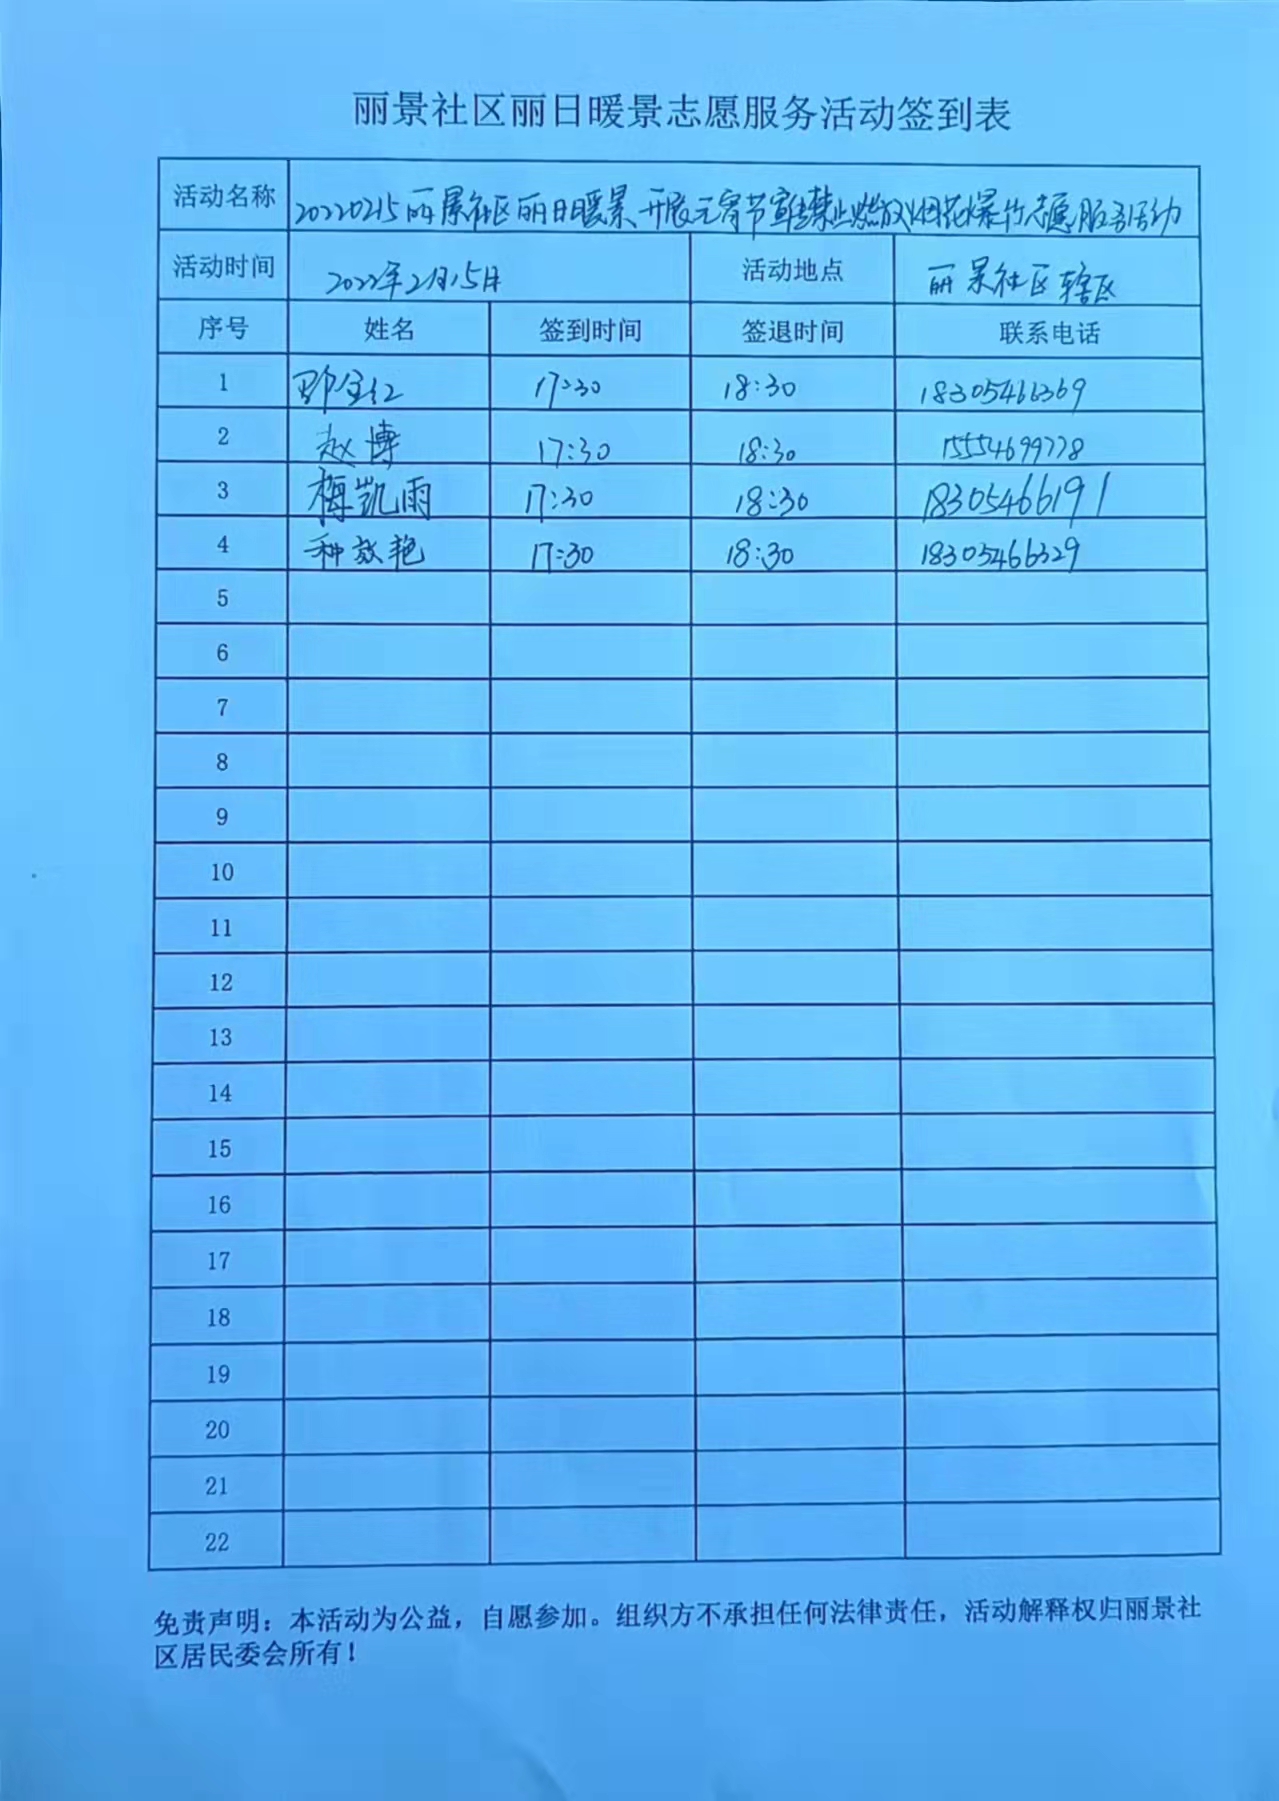 丽景社区丽日暖景志愿服务活动签到表
活动名称 20220215丽景社区丽日暖景开展元宵节宣传禁止燃放烟花爆竹志愿服务活动
活动时间 2022年2月15日 活动地点 丽景社区辖区
序号 姓名 签到时间 签退时间 联系电话
1 17:30 18:30 18305466369
2 赵博 17:30 18:30 15554699778
3 梅凯雨 17:30 18:30 18305466191
4 种效艳 17:30 18:30 18305466329
5
6
7
8
9
10
11
12
13
14
15
16
17
18
19
20
21
22
免责声明：本活动为公益，自愿参加。组织方不承担任何法律责任，活动解释权归丽景社
区居民委会所有！